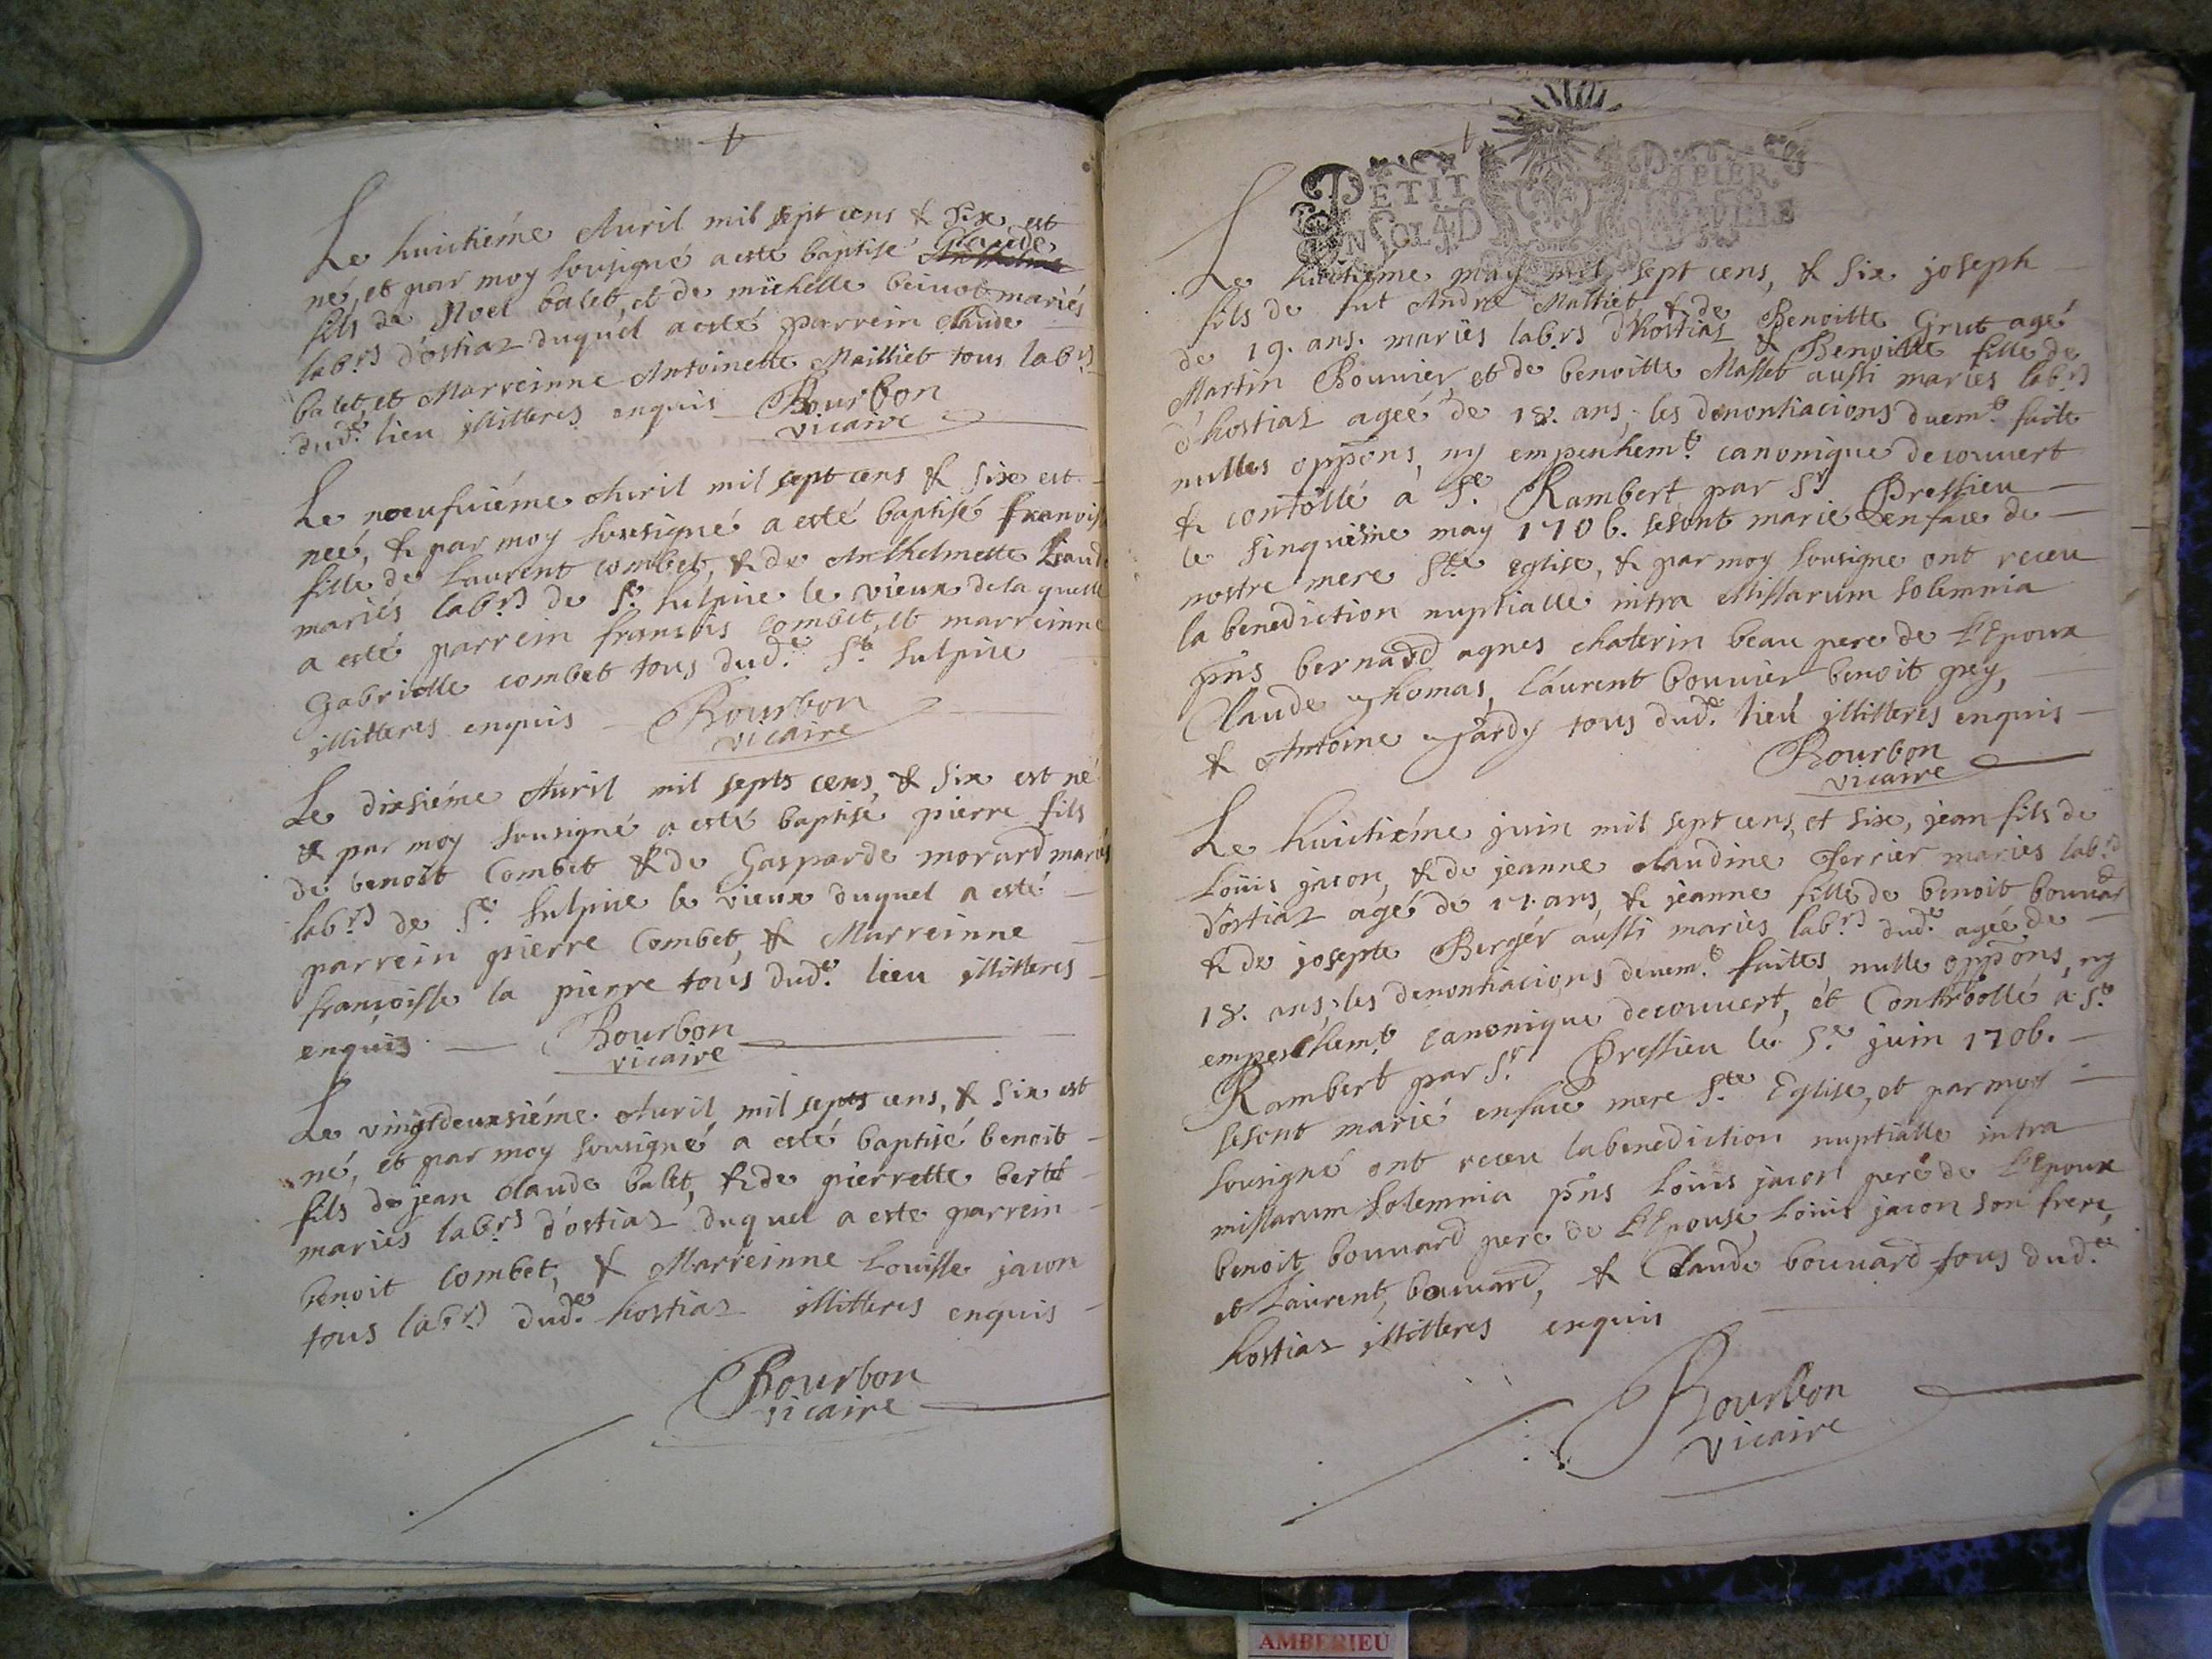 Le huictiéme Auril mil sept cens & six est
né, et par moy sousigné a esté baptise Claude
fils de Noel balet, et de michelle beinot mariés
lab.rs d'ostiaz duquel a esté parrein claude
balet, et Marreinne Antoinette Mailliet tous lab.rs
dud.e lieu illitteres enquis Bourbon
vicaire
Le noeufuiéme Auril mil sept cens & six est
neé, & par moy sousigné a esté baptisé
fille de Laurent combet, & de Anthelmette
mariés lab.rs de S.t Sulpice le vieux de la quelle
a esté parrein francois combet, et marreinne
Gabrielle combet tous dud.e S.t Sulpice
illitteres enquis Bourbon
vicaire
Le dixsiéme Auril mil septs cens, & six est né
& par moy sousigné a esté baptisé pierre fils
de benoit Combet & de Gasparde morard mariés
lab.rs de S.t Sulpice le vieux duquel a esté
parrein pierre Combet, & Marreinne
françoisse la pierre tous dud.e lieu illitteres
enquis Bourbon
vicaire
Le vingtdeuxsiéme Auril mil septs cens, & six est
né, et par moy sousigné a esté baptisé benoit
fils de jean claude balet, & de pierrette bertet
mariés lab.rs d'ostiaz duquel a esté parrein
benoit combet, & Marreinne Louisse jacon
tous lab.rs dud.e hostiaz illitteres enquis
Bourbon
vicaire
PETIT PAPIER
EN SOL 4 D
Le huictiéme may mil sept cens, & six joseph
fils de fut André Malliet & de Benoitte Grut agé
de 19. ans. mariés lab.rs d'hostiaz & Benoitte fille de
Martin Bouuier, et de benoitte Masset aussi mariés lab.rs
d'hostiaz ageé de 18. ans, les denontiacions duem.t faite
nulles oppõns, ny empeschem.t canonique decouuert
& contollé à S.t Rambert par S.r Pressieu
le sinquiéme may 1706. se sont marié en face de
nostre mere S.te eglise, & par moy sousigne ont receu
la benediction nuptialle intra Missarum solemnia
pñs bernard agnes chaterin beau pere de l'Epoux
Claude Thomas, Laurent bouuier benoit pey,
& Antoine jardy tous dud.e lieu illitteres enquis
Bourbon
vicaire
Le huictiéme juin mil sept cens, et six, jean fils de
Loüis jacon, & de jeanne claudine Ferrier mariés lab.rs
d'ostiaz agé de 17. ans, & jeanne fille de benoit bouuard
& de josepte Bergér aussi mariés lab.rs dud.e ageé de
18. ans, les denontiacions deuem.t faites nulle oppõns, ny
empeschem.t canonique decouuert, et Controollé a S.t
Rambert par S.r Pressieu le 5.e juin 1706.
se sont marié en face mere S.te Eglise, et par moy
sousigné ont receu la benediction nuptialle intra
missarum solemnia pñs Loüis jacon pere de l'Epoux
benoit bouuard pere de l'Epouse Loüis jacon son frere,
et Laurent, bouuard, & Claude bouuard tous dud.e
hostiaz illitteres enquis
Bourbon
vicaire
AMBERIEU